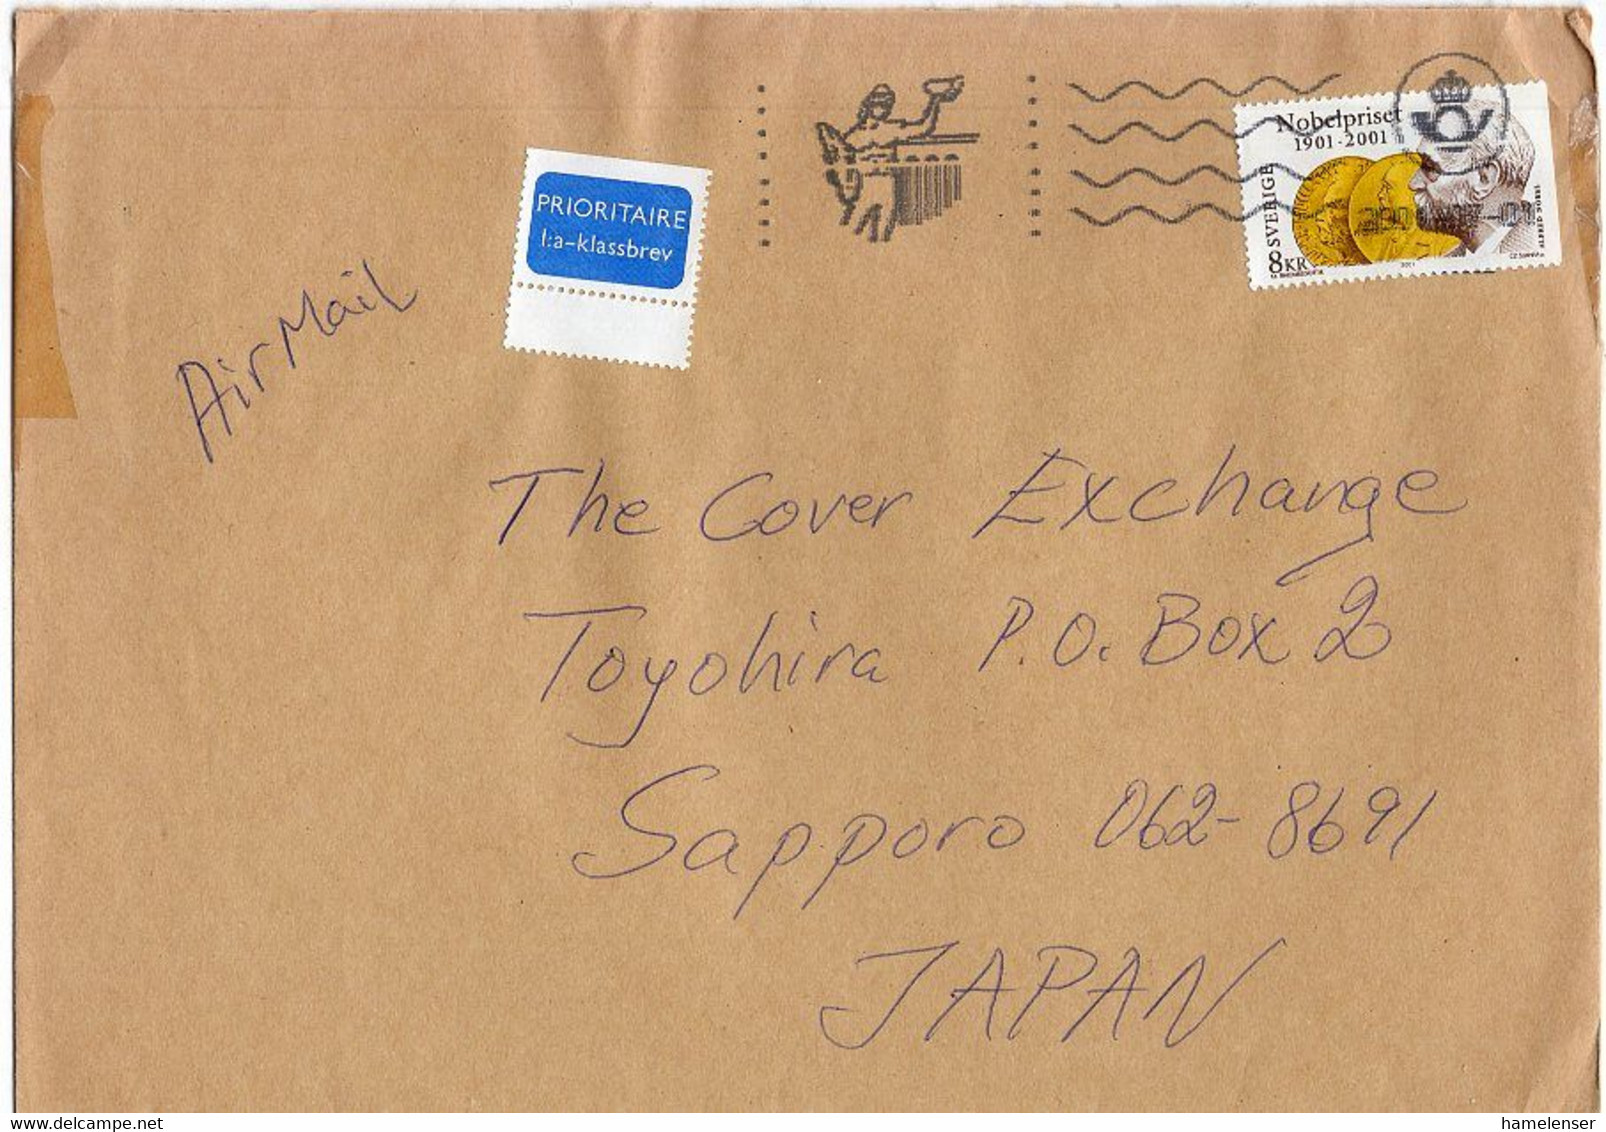 Nobelpriset
1901-2001
SVERIGE
8KR
ALFRED NOBEL
2001
PRIORITAIRE
1:a-klassbrev
Air Mail
The Cover Exchange
Toyohira P.O. Box 2
Sapporo 062-8691
JAPAN
delcampe.net
hamelenser